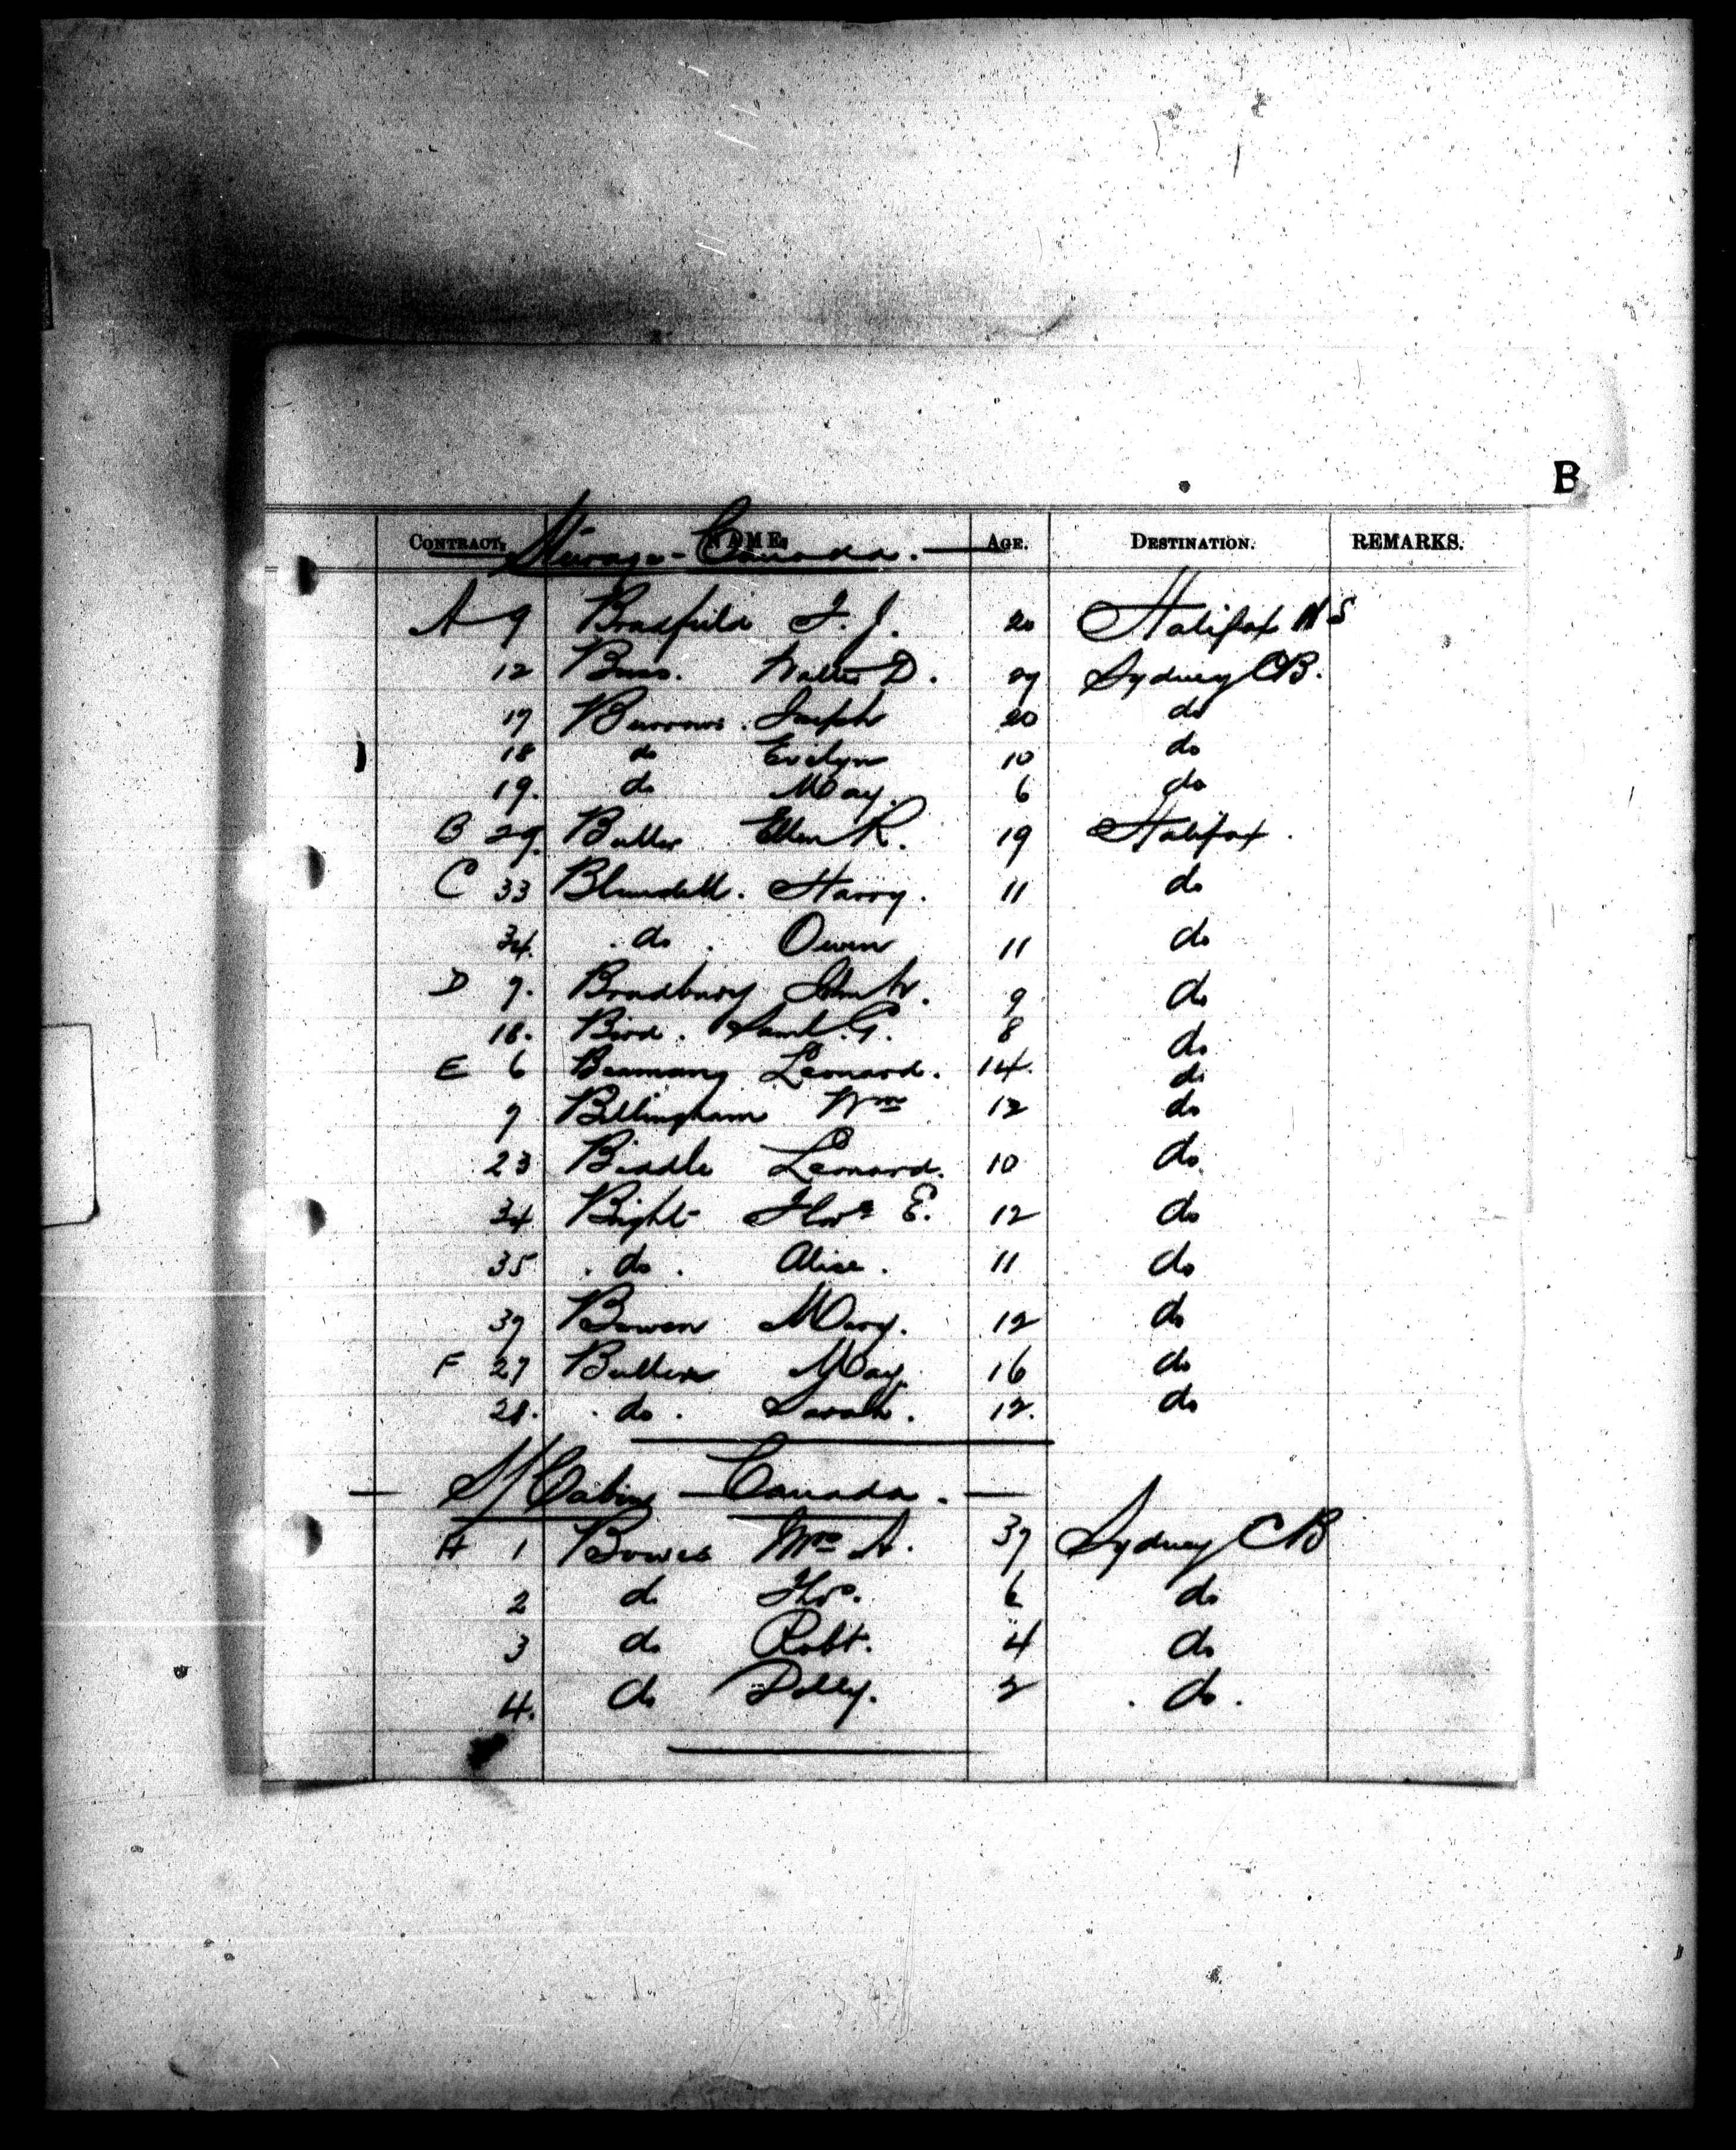 B
CONTRACT. NAME. AGE. DESTINATION. REMARKS.
Steerage - Canada.
A 9 Bradfield J. J. 20 Halifax NS
12 Bass. Walter D. 27 Sydney CB.
17 Burrows. Joseph 20 do
18 do Evelyn 10 do
19. do May. 6 do
B 29. Butler Ellen R. 19 Halifax.
C 33 Blundell. Harry. 11 do
34. do. Owen 11 do
D 7. Bradbury John W. 9 do
18. Bird. Saml. G. 8 do
E 6 Leonard. 14. do
7 Billingham Wm 12 do
23 Biddle Leonard. 10 do
34 Bright Thos E. 12 do
35 do. Alice. 11 do
37 Bowen Mary. 12 do
F 27 May. 16 do
28. do. Sarah. 12. do
S/Cabin - Canada.
A 1 Bowes Mrs A. 37 Sydney CB
2 do Thos. 6 do
3 do Robt. 4 do
4. do Dolly. 2 do.